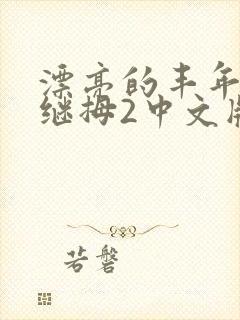 漂亮的丰年
继拇2中文版
若磐